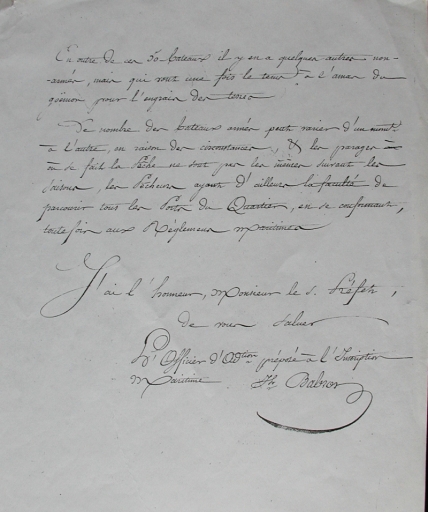 En outre de ces 50 bateaux il y en a quelques autres non-
-armés, mais qui vont une fois le tems à l'amas du
goëmon pour l'engrais des terres
Le nombre des bateaux armés peut varier d'un mois
à l'autre, en raison des circonstances, & les parages
où se fait la Pêche ne sont pas les mêmes suivant les
Saisons, les Pêcheurs ayant d'ailleurs la faculté de
parcourir tous les Ports du Quartier, en se conformant,
toutefois aux Règlemens Maritimes
J'ai l'honneur, Monsieur le S. Préfet,
de vous saluer
L' Officier d'Adtion préposé à l'Inscription
Maritime